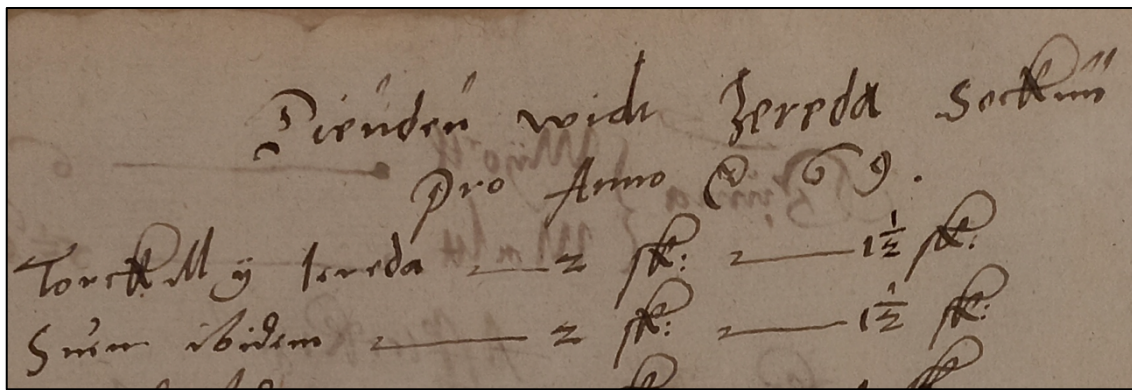 Tiendenn widt Jereda Sockunn
pro Anno 69.
Torckill y Jereda — 2 sk: — 1½ sk:
Suen ibidem — 2 sk: — 1½ sk: